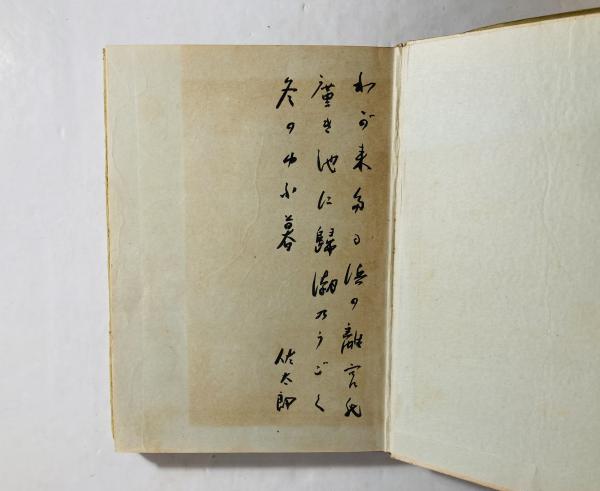 わが来たる浜の離宮の
廣き池に歸潮のうごく
冬のゆふ暮
佐太郎